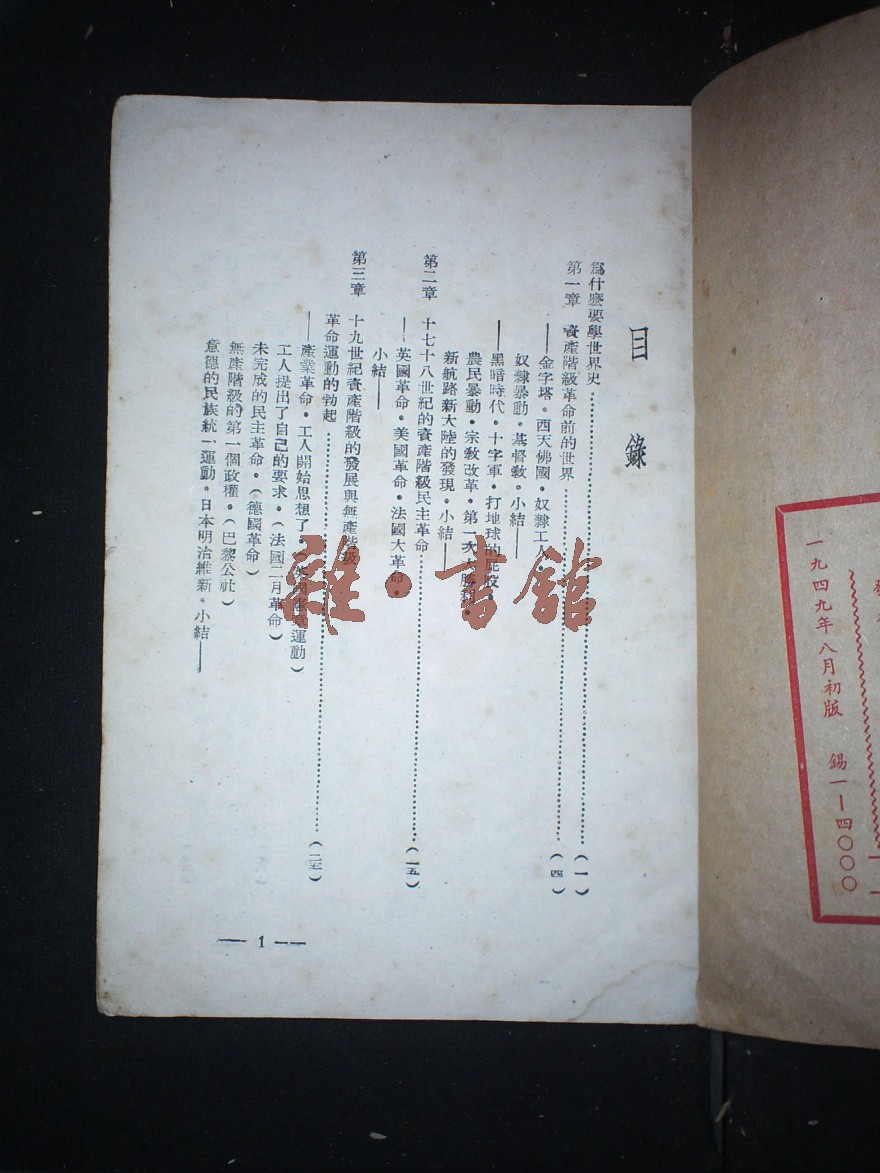 目錄
為什麼要學世界史…………(一)
第一章 資產階級革命前的世界…………(四)
——金字塔•西天佛國•奴隸工人•
奴隸暴動•基督教•小結——
——黑暗時代•十字軍•打地球的屁股•
農民暴動•宗教改革•第一次大勝利•
新航路新大陸的發現•小結——
第二章 十七十八世紀的資產階級民主革命…………(一五)
——英國革命•美國革命•法國大革命•
小結——
第三章 十九世紀資產階級的發展與無產階級
革命運動的勃起…………(二五)
——產業革命•工人開始思想了•(英國憲章運動)
工人提出了自己的要求•(法國二月革命)
未完成的民主革命•(德國革命)
無產階級的第一個政權•(巴黎公社)
意德的民族統一運動•日本明治維新•小結——
— 1 —
一九四九年八月初版 錫一—四〇〇〇
雜•書館